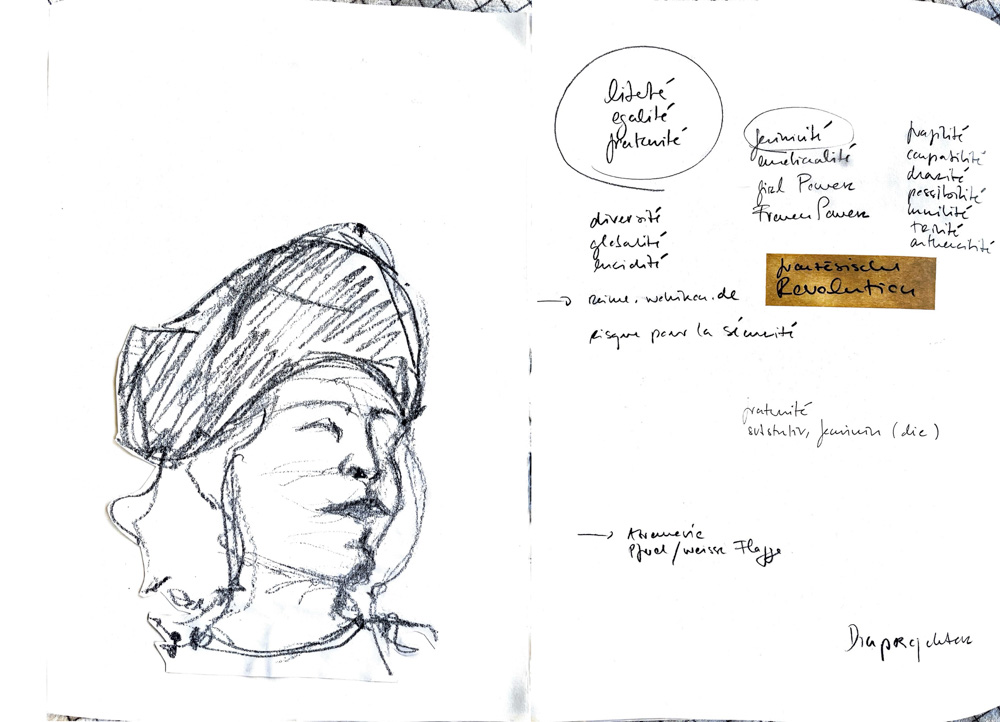 liberté
egalité
fraternité
feminité
emotionalité
girl Power
Frauen Power
fragilité
compatibilité
possibilité
humilité
diversité
globalité
lucidité
französische
Revolution
risque pour la sécurité
fraternité
substantiv, feminin (die)
Pferd / weisse Flagge
Diaprojektor